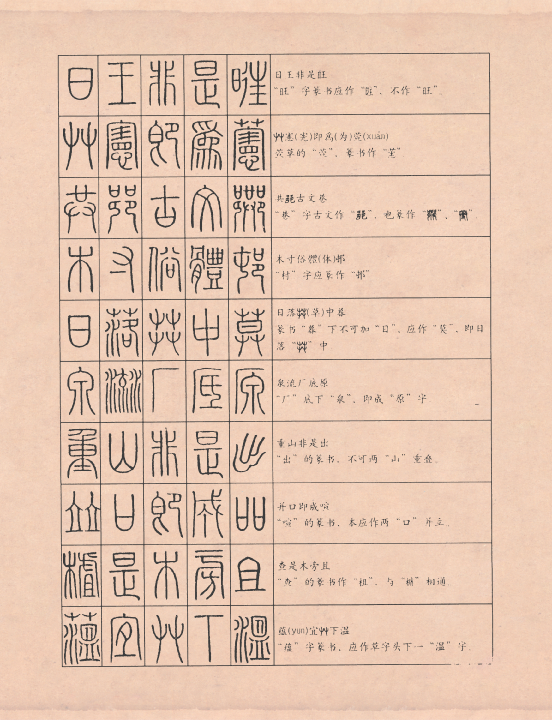 日王非是暀
日王非是旺
“旺”字篆书应作“暀”，不作“旺”。
艸憲即爲藼
艸憲(宪)即爲(为)萱(xuān)
萱草的“萱”，篆书作“藼”
古文
古文巷
“巷”字古文作“ ”，也篆作“ ”、“ ”
木寸俗體邨
木寸俗體(体)邨
“村”字应篆作“邨”
日落茻中莫
日落茻(草)中暮
篆书“暮”下不可加“日”，应作“莫”，即日
落“茻”中
泉流厂底原
泉流厂底原
“厂”底下“泉”，即成“原”字
重山非是出
重山非是出
“出”的篆书，不可两“山”重叠。
並口即成吅
并口即成喧
“喧”的篆书，本应作两“口”并立。
樝是木旁且
查是木旁且
“查”的篆书作“柤”，与“樝”相通。
蕴宜艸下温
蕴(yun)宜艸下温
“蕴”字篆书，应作草字头下一“温”字。